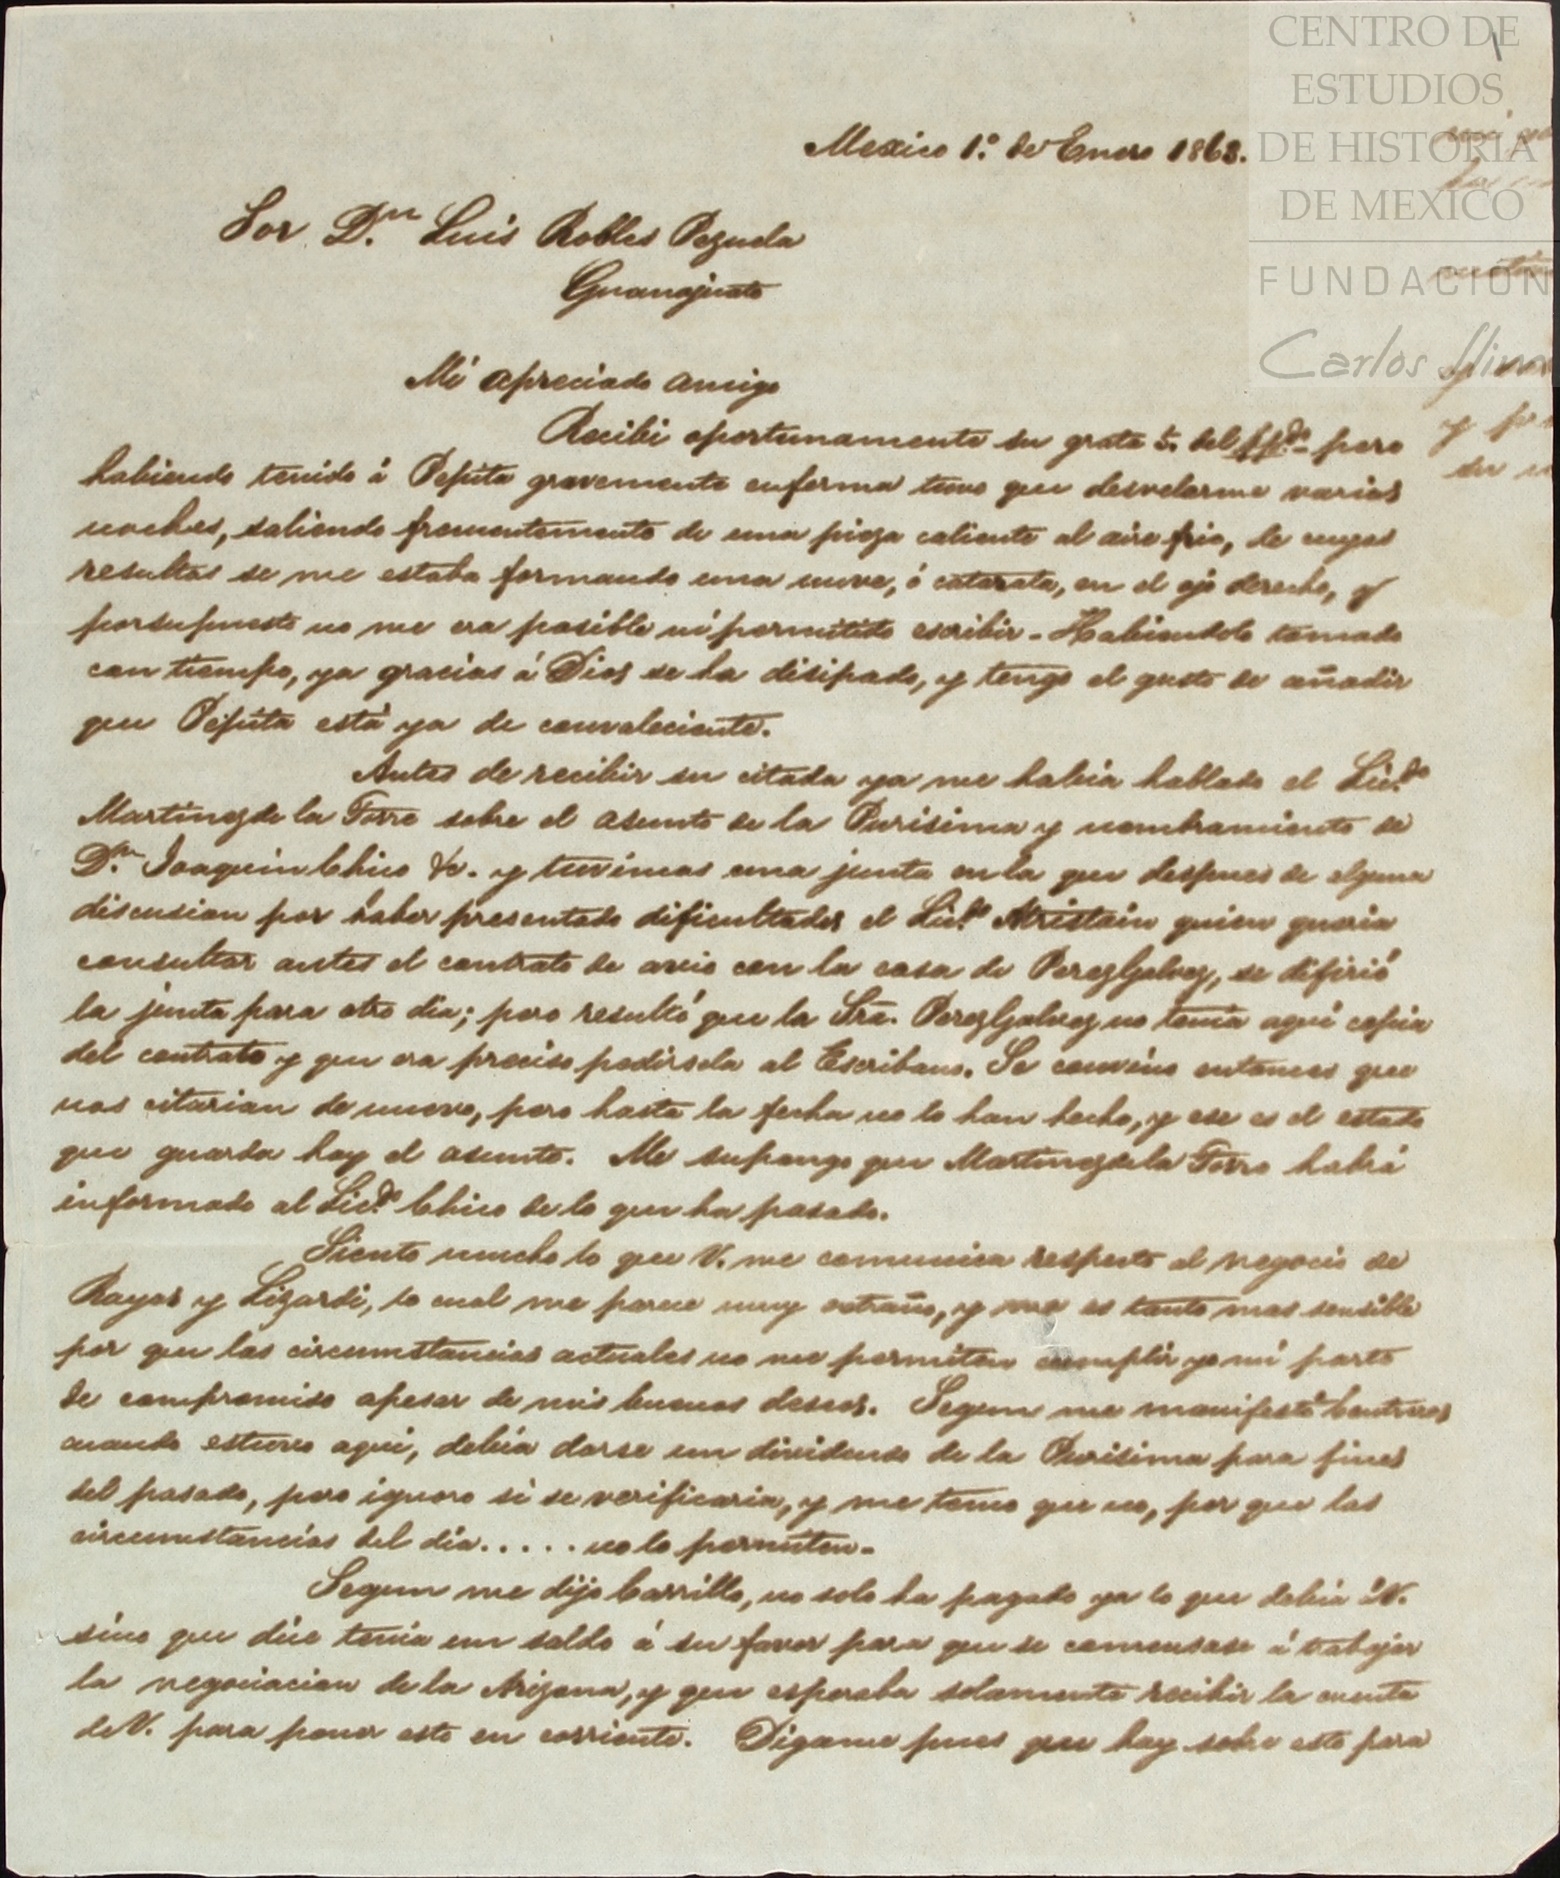 CENTRO DE
ESTUDIOS
DE HISTORIA
DE MEXICO
FUNDACION
Carlos Slim
Mexico 1.º de Enero 1863.
Sor D.n Luis Robles Pezuela
Guanajuato
Mi apreciado amigo
Recibi oportunamente su grata 5. del ppdo- pero
habiendo tenido á Pepita gravemente enferma tuve que desvelarme varias
noches, saliendo frecuentemente de una pieza caliente al aire frio, de cuyas
resultas se me estaba formando una nuve, ó catarata, en el ojo derecho, y
porsupuesto no me era posible ni permitido escribir - Habiendolo tomado
con tiempo, ya gracias á Dios se ha disipado, y tengo el gusto de añadir
que Pepita está ya de convaleciente.
Antes de recibir su citada ya me habia hablado el Lic.do
Martinez de la Torre sobre el asunto de la Purisima y nombramiento de
D.n Joaquin Chico &c. y tuvimos una junta en la que despues de alguna
discusion por haber presentado dificultades el Lic.do Aristain quien queria
consultar antes el contrato de avio con la casa de PerezGalvez, se difirió
la junta para otro dia; pero resultó que la Sra. PerezGalvez no tenia aqui copia
del contrato y que era preciso pedirsela al Escribano. Se convino entonces que
nos citarian de nuevo, pero hasta la fecha no lo han hecho, y ese es el estado
que guarda hoy el asunto. Me supongo que Martinez de la Torre habrá
informado al Lic.do Chico de lo que ha pasado.
Siento mucho lo que V. me comunica respecto al negocio de
Rayas y Lizardi, lo cual me parece muy estraño, y me es tanto mas sensible
por que las circumstancias actuales no me permiten cumplir yo mi parte
de compromiso apesar de mis buenos deseos. Segun me manifestó Contreras
cuando estuvo aqui, debia darse un dividendo de la Purisima para fines
del pasado, pero ignoro si se verificaria, y me temo que no, por que las
circumstancias del dia..... no lo permiten -
Segun me dijo Carrillo, no solo ha pagado ya lo que debia á V.
sino que dice tenia un saldo á su favor para que se comensase á trabajar
la negociacion de la Arizona, y que esperaba solamente recibir la cuenta
de V. para poner esto en corriente. Digame pues que hay sobre esto para